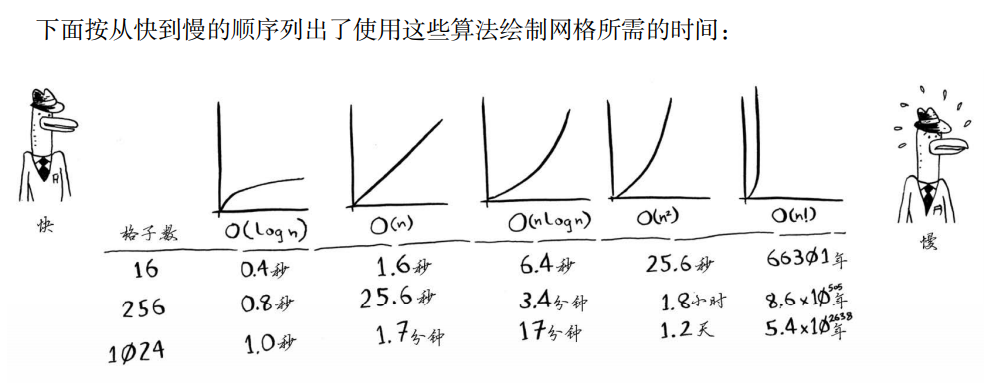 下面按从快到慢的顺序列出了使用这些算法绘制网格所需的时间：
快
慢
格子数 O(logn) O(n) O(nlogn) O(n²) O(n!)
16 0.4秒 1.6秒 6.4秒 25.6秒 66301年
256 0.8秒 25.6秒 3.4分钟 1.8小时 8.6x10⁵⁰⁵年
1024 1.0秒 1.7分钟 17分钟 1.2天 5.4x10²⁶³⁸年